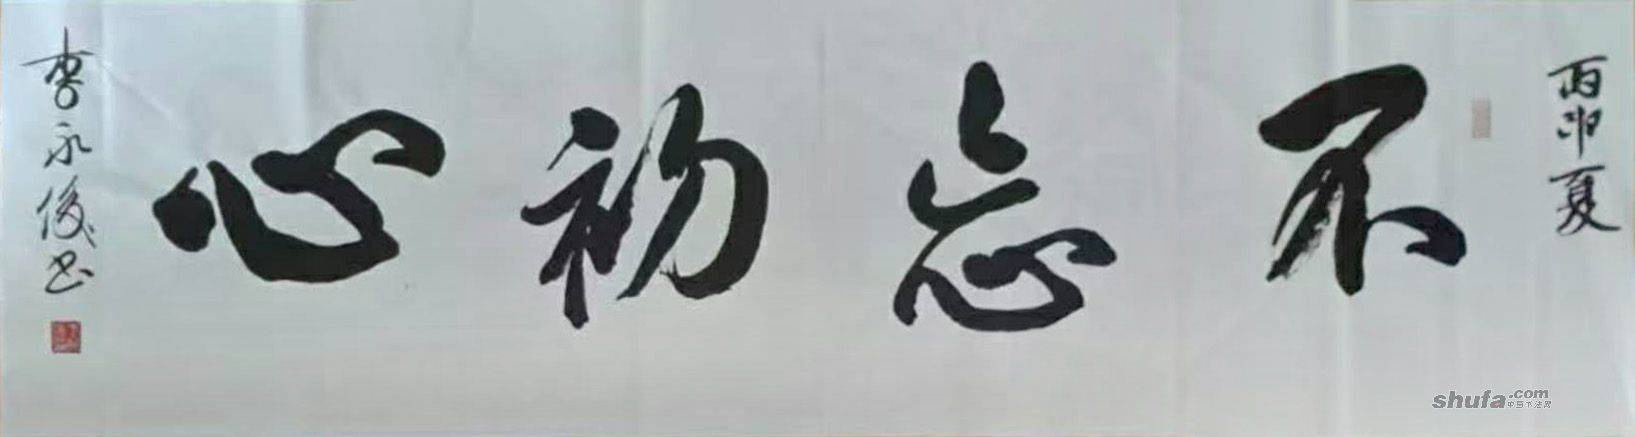 丙申夏
不忘初心
李永俊书
shufa.com